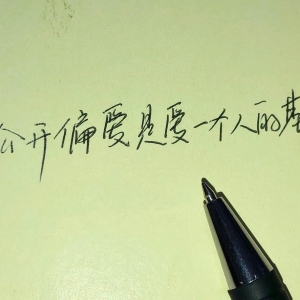 公开偏爱是爱一个人的基